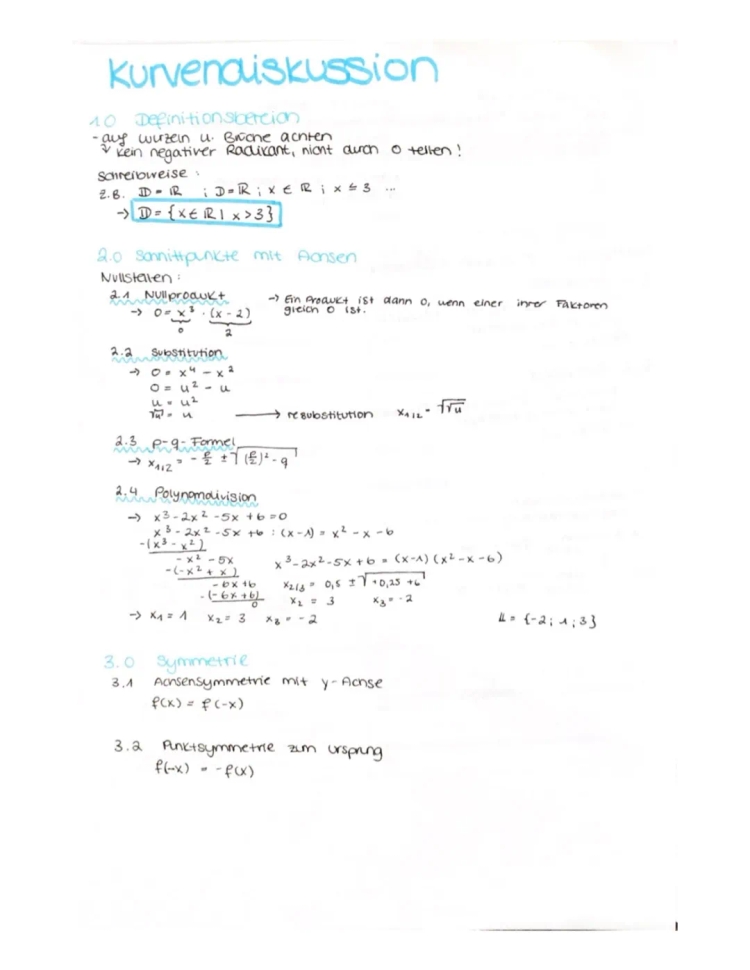 Kurvendiskussion
1.0 Definitionsbereich
- auf Wurzeln u. Brüche achten
↓ kein negativer Radikant, nicht durch 0 teilen!
Schreibweise:
z.B. D = ℝ ; D = ℝ ; x ∈ ℝ ; x ≤ 3 ...
→ D = {x ∈ ℝ | x > 3}
2.0 Schnittpunkte mit Achsen
Nullstellen:
2.1 Nullprodukt → Ein Produkt ist dann 0, wenn einer ihrer Faktoren
→ 0 = x³ · (x - 2) gleich 0 ist.
0 2
2.2 Substitution
→ 0 = x⁴ - x²
0 = u² - u
u = u²
√u = u → resubstitution x₁,₂ = √√u
2.3 p-q-Formel
→ x₁,₂ = - p/2 ± √(p/2)² - q
2.4 Polynomdivision
→ x³ - 2x² - 5x + 6 = 0
x³ - 2x² - 5x + 6 : (x - 1) = x² - x - 6
-(x³ - x²)
- x² - 5x x³ - 2x² - 5x + 6 = (x - 1) (x² - x - 6)
-(-x² + x)
- 6x + 6 x₂,₃ = 0,5 ± √+0,25 + 6
-(-6x + 6) x₂ = 3 x₃ = -2
0
→ x₁ = 1 x₂ = 3 x₃ = -2 𝕃 = {-2; 1; 3}
3.0 Symmetrie
3.1 Achsensymmetrie mit y-Achse
f(x) = f(-x)
3.2 Punktsymmetrie zum Ursprung
f(-x) = -f(x)